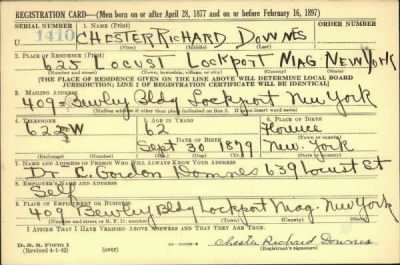 REGISTRATION CARD—(Men born on or after April 28, 1877 and on or before February 16, 1897)
SERIAL NUMBER 1. NAME (Print) ORDER NUMBER
1410 CHESTER RICHARD DOWNES
(First) (Middle) (Last)
2. PLACE OF RESIDENCE (Print)
625 LOCUST LOCKPORT NIAG NEW YORK
(Number and street) (Town, township, village, or city) (County) (State)
[THE PLACE OF RESIDENCE GIVEN ON THE LINE ABOVE WILL DETERMINE LOCAL BOARD
JURISDICTION; LINE 2 OF REGISTRATION CERTIFICATE WILL BE IDENTICAL]
3. MAILING ADDRESS
409 - Bewley Bldg Lockport New York
[Mailing address if other than place indicated on line 2. If same insert word same]
4. TELEPHONE 5. AGE IN YEARS 6. PLACE OF BIRTH
622 W 62
DATE OF BIRTH (Town or county)
Sept 30 1879 New York
(Exchange) (Number) (Mo.) (Day) (Yr.) (State or country)
7. NAME AND ADDRESS OF PERSON WHO WILL ALWAYS KNOW YOUR ADDRESS
Dr C. Gordon Downes 639 Locust St
8. EMPLOYER'S NAME AND ADDRESS
Self
9. PLACE OF EMPLOYMENT OR BUSINESS
409 Bewley Bldg Lockport Niag. New York
(Number and street or R. F. D. number) (Town) (County) (State)
I AFFIRM THAT I HAVE VERIFIED ABOVE ANSWERS AND THAT THEY ARE TRUE.
D. S. S. Form 1
(Revised 4-1-42) (over) Chester Richard Downes
(Registrant's signature)